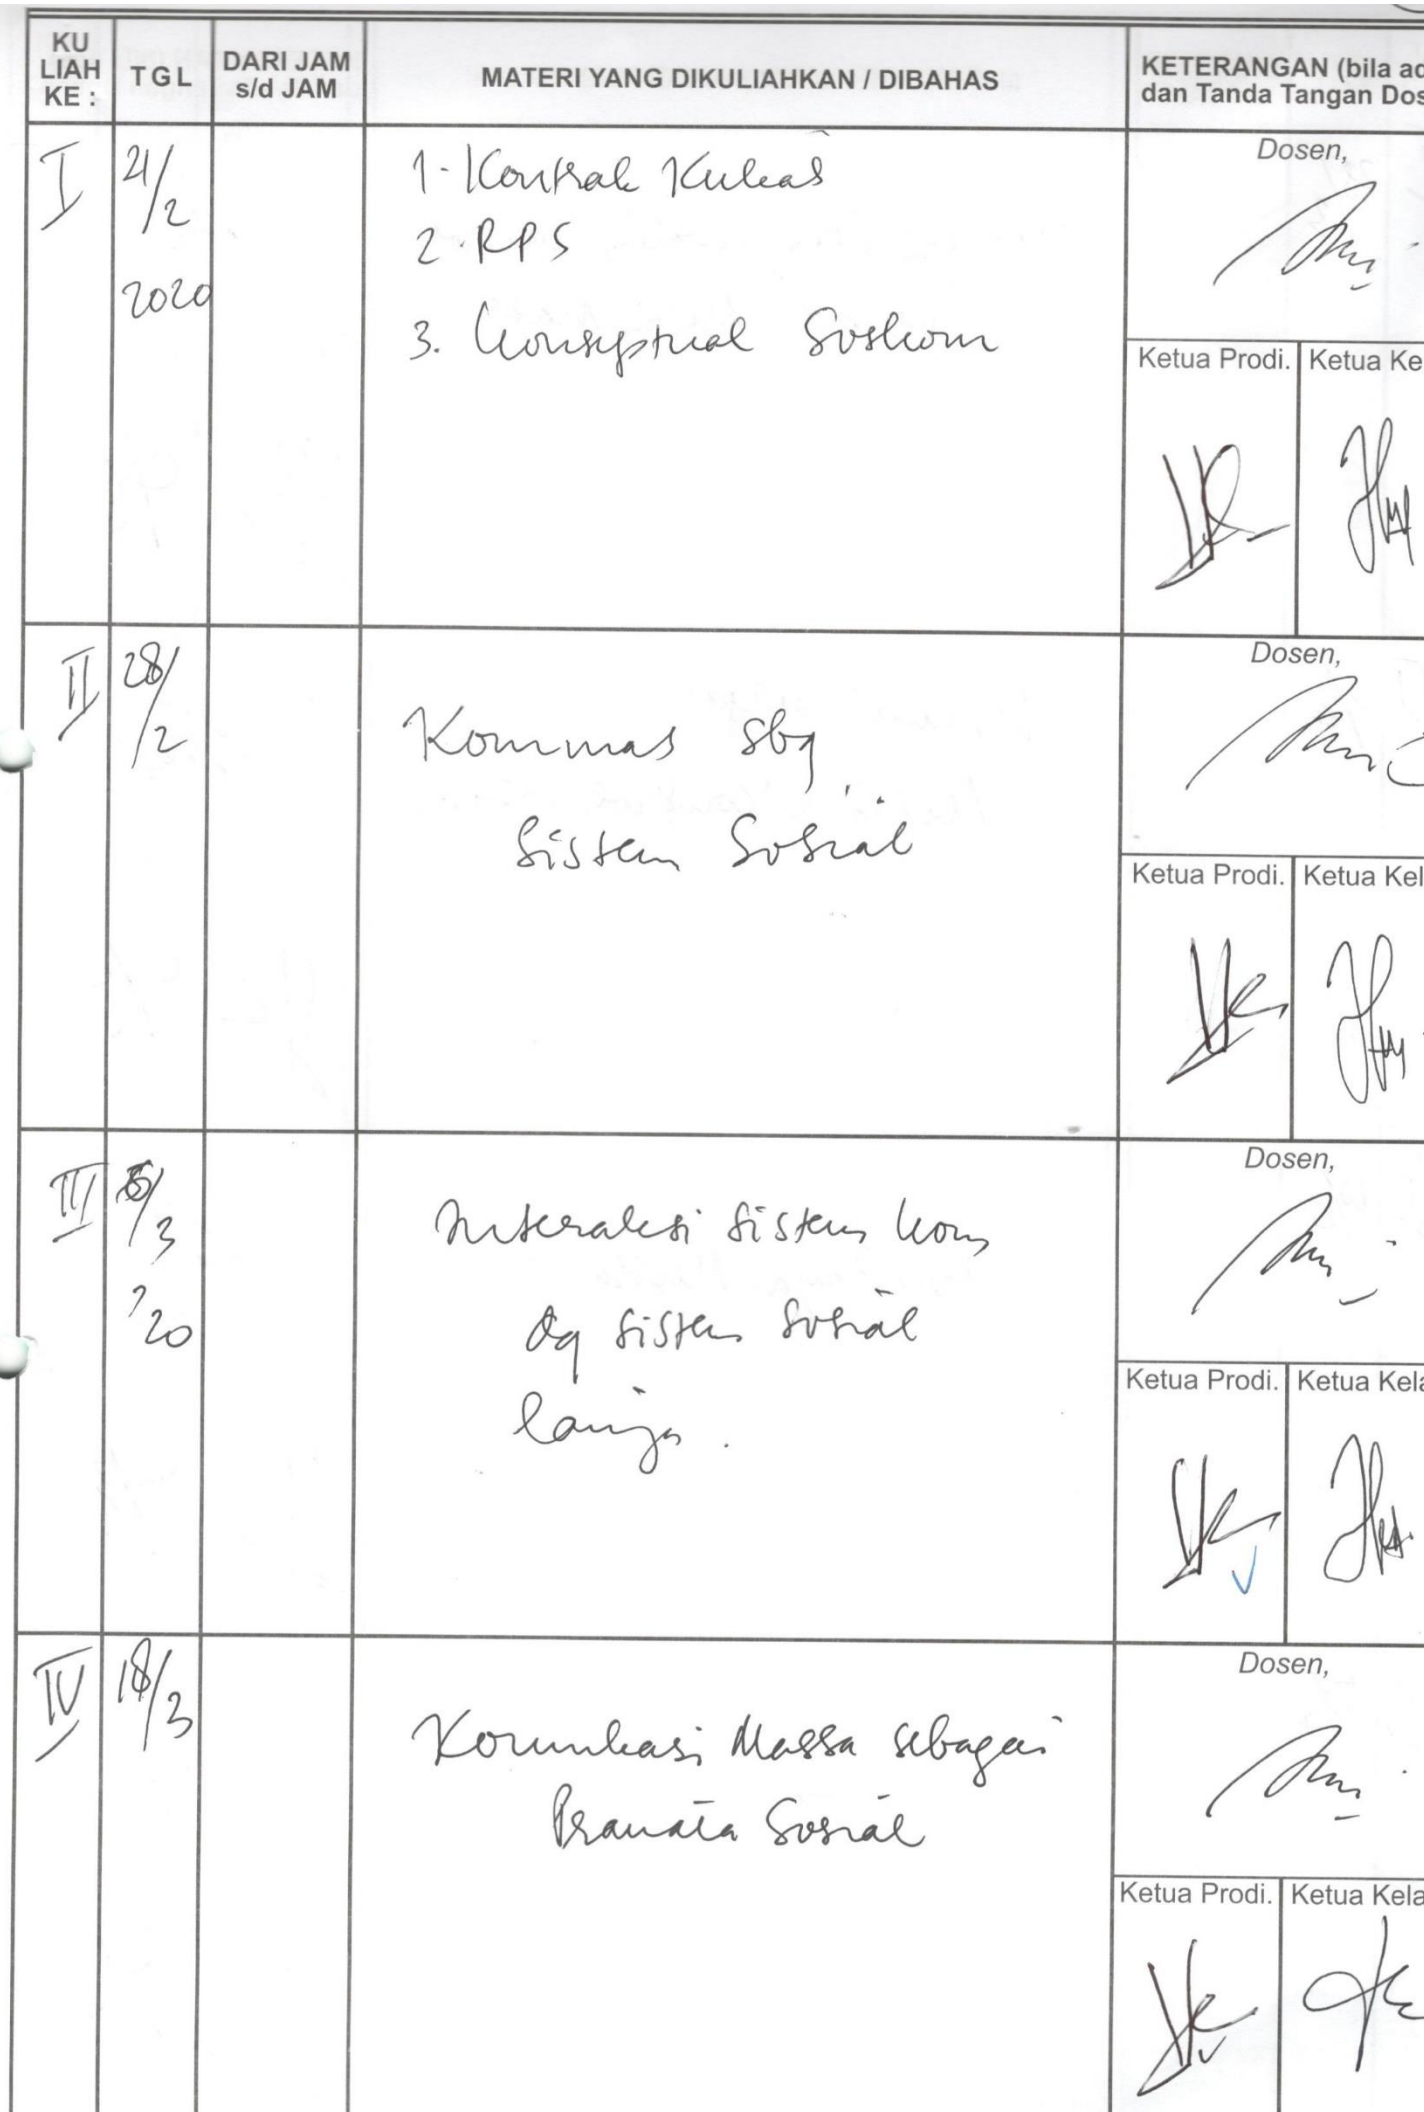 KU
LIAH
KE :
TGL
DARI JAM
s/d JAM
MATERI YANG DIKULIAHKAN / DIBAHAS
KETERANGAN (bila ad
dan Tanda Tangan Dos
I
21/2
2020
1. Kontrak Kuliah
2. RPS
3. Konseptual Soskom
Dosen,
Ketua Prodi.
Ketua Ke
II
28/2
Kommas sbg
Sistem Sosial
Dosen,
Ketua Prodi.
Ketua Kel
III
6/3
'20
Interaksi Sistem Kom
dg Sistem Sosial
lainya.
Dosen,
Ketua Prodi.
Ketua Kela
IV
18/3
Komunikasi Massa sebagai
Pranata Sosial
Dosen,
Ketua Prodi.
Ketua Kela